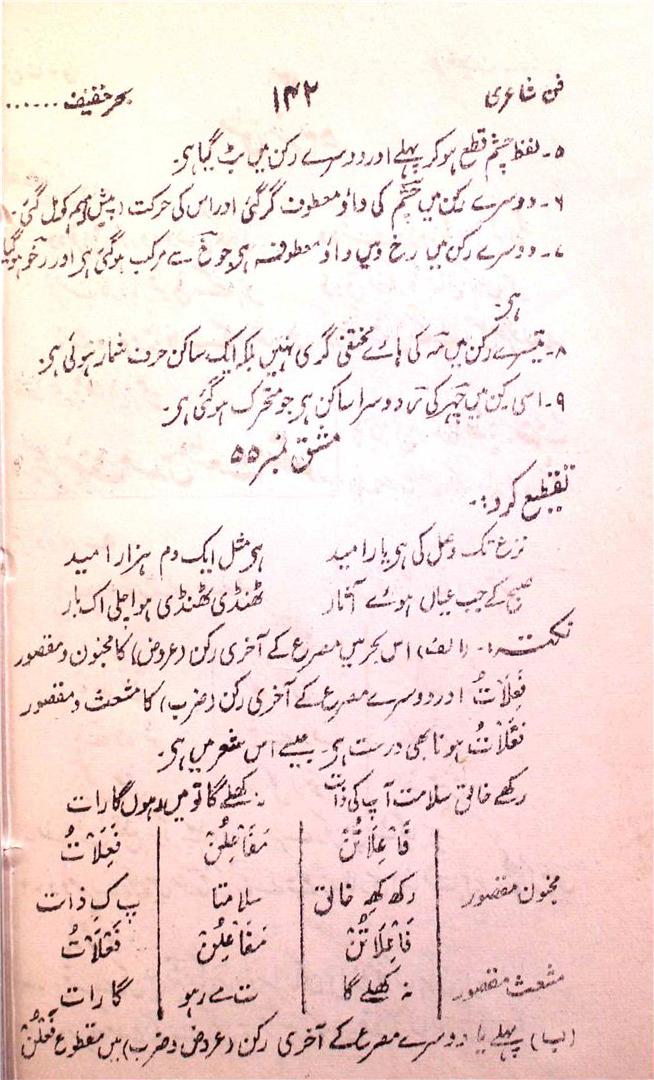 فن شاعری ۱۴۲ بحر خفیف......
۵۔ لفظ چشم قطع ہو کر پہلے اور دوسرے رکن میں بٹ گیا ہی۔
۶۔ دوسرے رکن میں چشم کی واؤ معطوف گر گئی اور اس کی حرکت (پیش) میم کو مل گئی۔
۷۔ دوسرے رکن میں رخ میں واؤ معطوفہ ہی جو خ سے مرکب ہو گئی ہی اور رخو ہو گیا
ہی۔
۸۔ تیسرے رکن میں مہ کی ہائے مختفی گری نہیں بلکہ ایک ساکن حرف شمار ہوئی ہی۔
۹۔ اسی رکن میں چہر کی ر دوسرا ساکن ہی جو متحرک ہو گئی ہی۔
مشق نمبر ۵۵
تقطیع کرو:۔
نزع تک وصل کی ہی یارا مید ہی مثل ایک دم ہزار امید
صبح کے جب عیاں ہوئے آثار ٹھنڈی ٹھنڈی ہوا چلی اک بار
نکتہ:۔ (الف) اس بحر میں مصرع کے آخری رکن (عروض) کا مخبون و مقصور
فَعِلَاتُ اور دوسرے مصرع کے آخری رکن (ضرب) کا مشعث و مقصور
فَعْلَاتُ ہونا بھی درست ہی۔ جیسے اس شعر میں ہی۔
رکھے خالق سلامت آپ کی ذات نہ کھلے گا تو میں رہوں گا رات
فَاعِلَاتُنْ مَفَاعِلُنْ فَعِلَاتُ
مخبون مقصور رکھ کھے خالق سلامتا پ کِ ذات
فَاعِلَاتُنْ مَفَاعِلُنْ فَعْلَاتُ
مشعث مقصور نہ کھلے گا ت مے رہو گا رات
(ب) پہلے یا دوسرے مصرع کے آخری رکن (عروض و ضرب) میں مقطوع فَعْلُنْ